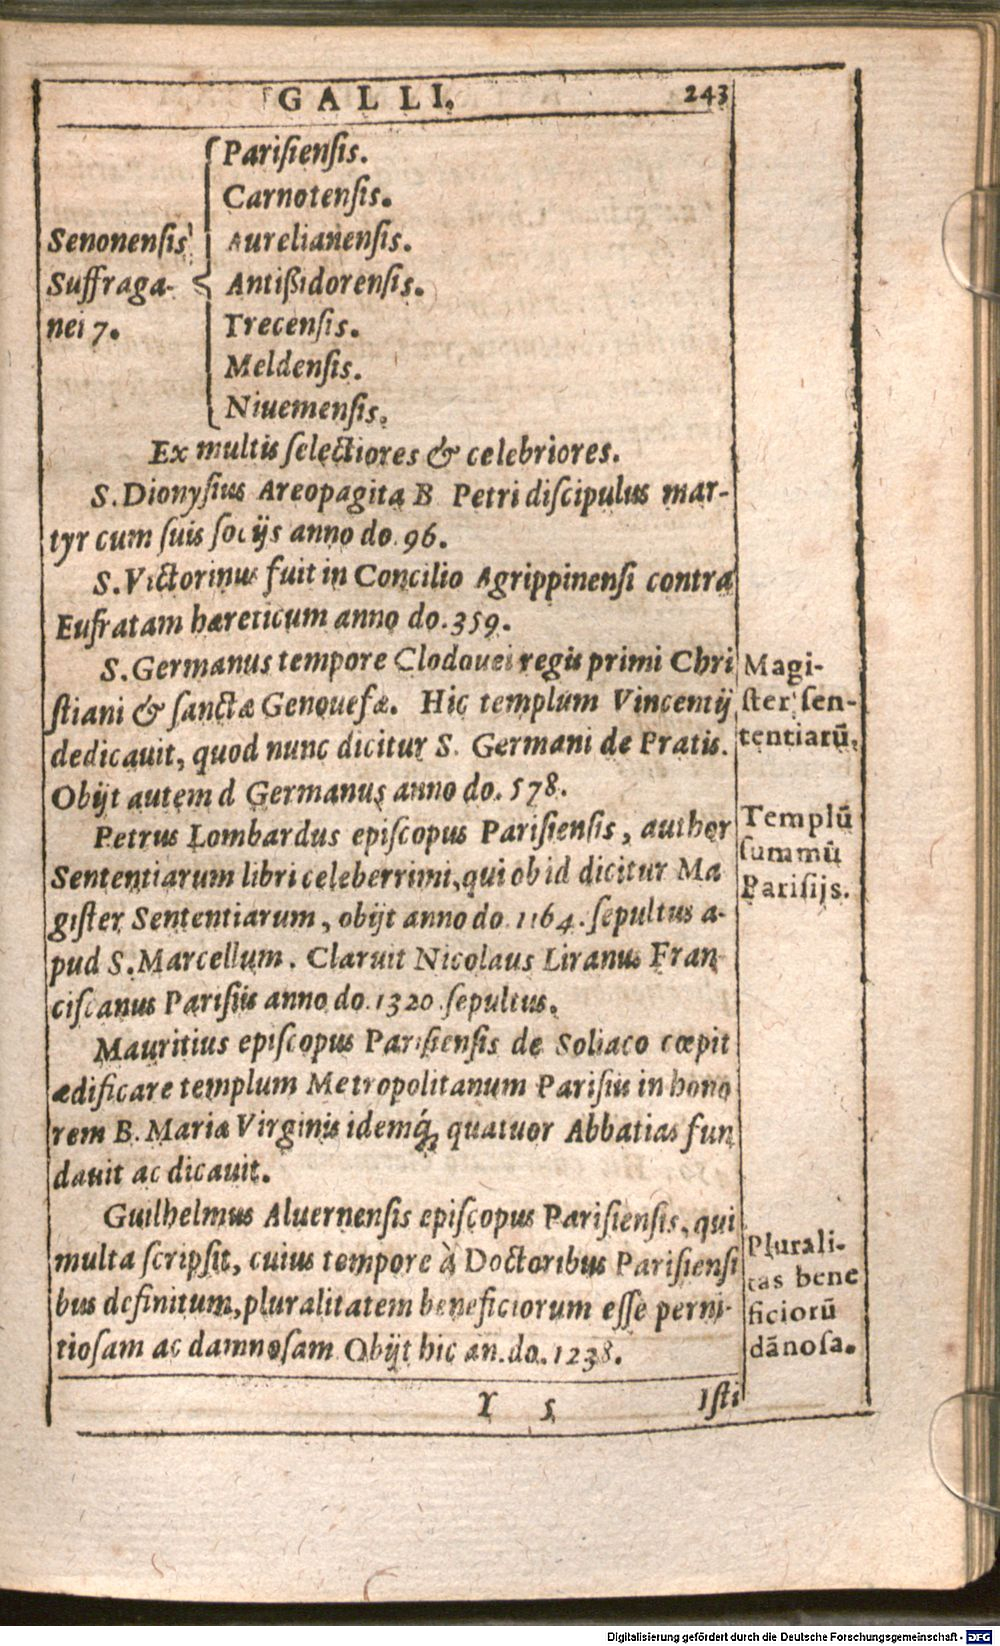 GALLI. 243
Senonensis
Suffraga-
nei 7.
Parisiensis.
Carnotensis.
Aurelianensis.
Antißidorensis.
Trecensis.
Meldensis.
Niuemensis.
Ex multis selectiores & celebriores.
S. Dionysius Areopagita B Petri discipulus mar-
tyr cum suis socijs anno do. 96.
S. Victorinus fuit in Concilio Agrippinensi contra
Eufratam hæreticum anno do. 359.
S. Germanus tempore Clodouei regis primi Chri
stiani & sanctæ Genouefæ. Hic templum Vincentij
dedicauit, quod nunc dicitur S. Germani de Pratis.
Obijt autem d Germanus anno do. 578.
Petrus Lombardus episcopus Parisiensis, author
Sententiarum libri celeberrimi, qui ob id dicitur Ma
gister Sententiarum, obijt anno do. 1164. sepultus a-
pud S. Marcellum. Claruit Nicolaus Liranus Fran
ciscanus Parisiis anno do. 1320. sepultus.
Mauritius episcopus Parisiensis de Soliaco cœpit
ædificare templum Metropolitanum Parisiis in hono
rem B. Mariæ Virginis idemq́; quatuor Abbatias fun
dauit ac dicauit.
Guilhelmus Aluernensis episcopus Parisiensis, qui
multa scripsit, cuius tempore à Doctoribus Parisiensi
bus definitum, pluralitatem beneficiorum esse perni-
tiosam ac damnosam Obijt hic an. do. 1238.
Magi-
ster sen-
tentiarũ.
Templũ
summũ
Parisijs.
Plurali-
tas bene
ficiorũ
dãnosa.
Y 5 Isti
Digitalisierung gefördert durch die Deutsche Forschungsgemeinschaft - DFG